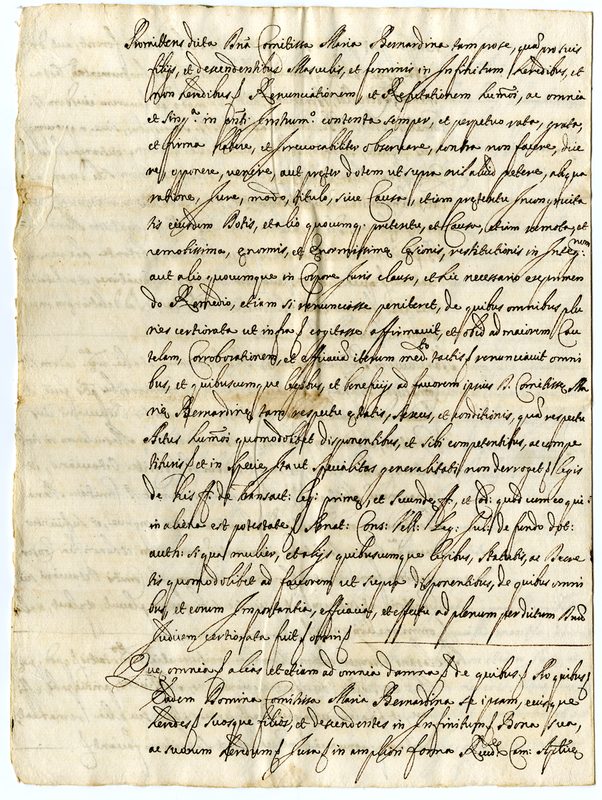 Promittens dicta Dnā Comitissa Maria Bernardina tam pro se, quam pro suis
filijs, et descendentibus Masculis, et feminis in Infinitum heredibus, et
non heredibus Renunciationem, et Refutationem hmōi, ac omnia
et sing.ª in pnti Instrum.º contenta semper, et perpetuo rata, grata,
et firma habere, et irrevocabiliter observare, contra non facere, dice
re, opponere, venire, aut preter dotem ut supra nil aliud petere, aliqua
ratione, Jure, modo, titulo, sive Causa, etiam pretextu Incongruita
tis eiusdem Dotis, et alio quocumq; pretextu, et Causa, etiam remota, et
remotissima, enormis, et enormissime lesionis, restitutionis in Integ: nem
aut alio quocumque in Corpore Juris clauso, et hic necessario exprimen
do Remedio, etiam si renunciasse peniteret, de quibus omnibus plu
ries certiorata ut infra cogitasse affirmavit, et ad maiorem Cau
telam, Corroborationem, et efficaciā iterum med.º tactis renunciavit omni
bus, et quibuscumque legibus, et beneficijs ad favorem ipsius D. Comitisse Ma
rie Bernardine tam respectu etatis, sexus, et conditionis, quam respectu
Actus hmōi quomodolibet disponentibus, et sibi competentibus, ac compe
tituris et in specie, Ita ut specialitas generalitati non derroget legis
de his ff: de transact: leg: prime, et secunde ff, et Cod: quod cum eo qui
in aliena est potestate Senat: Cons: Vell: Leg: Jul: de fundo dot:
auth: si qua mulier, et alijs quibuscumque legibus, statutis, ac Decre
tis quomodolibet ad favorem ut supra disponentibus, de quibus omni
bus, et eorum Importantia, efficacia, et effectu ad plenum per dictum Dnū
Iudicem certiorata fuit omni
Que omnia alias et etiam ad omnia damna de quibus Pro quibus
Eadem Domina Comitissa Maria Bernardina se ipsam, eiusque
heredes suosque filios, et descendentes in Infinitum Bona sua,
ac suorum heredum Jura in ampliori forma Rev: Cam: Aplice